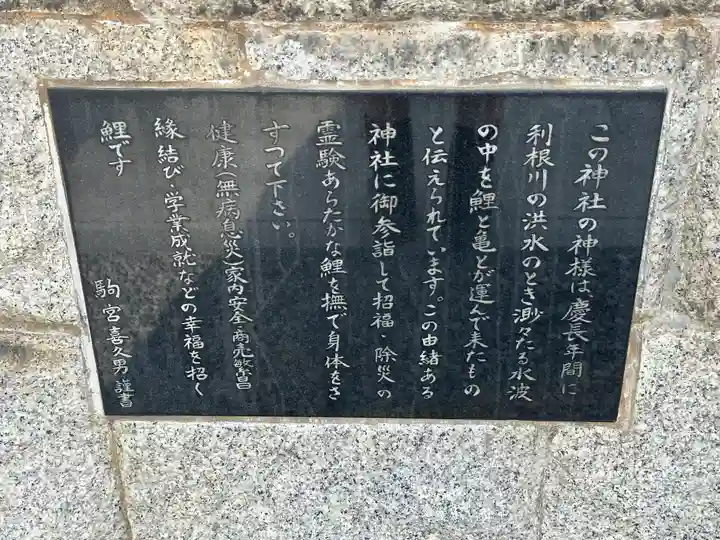 この神社の神様は、慶長年間に
利根川の洪水のとき渺々たる水波
の中を鯉と亀とが運んで来たもの
と伝えられています。この由緒ある
神社に御参詣して招福・除災の
霊験あらたかな鯉を撫で身体をさ
すつて下さい。
健康(無病息災)家内安全・商売繁昌
縁結び・学業成就などの幸福を招く
鯉です
駒宮喜久男謹書